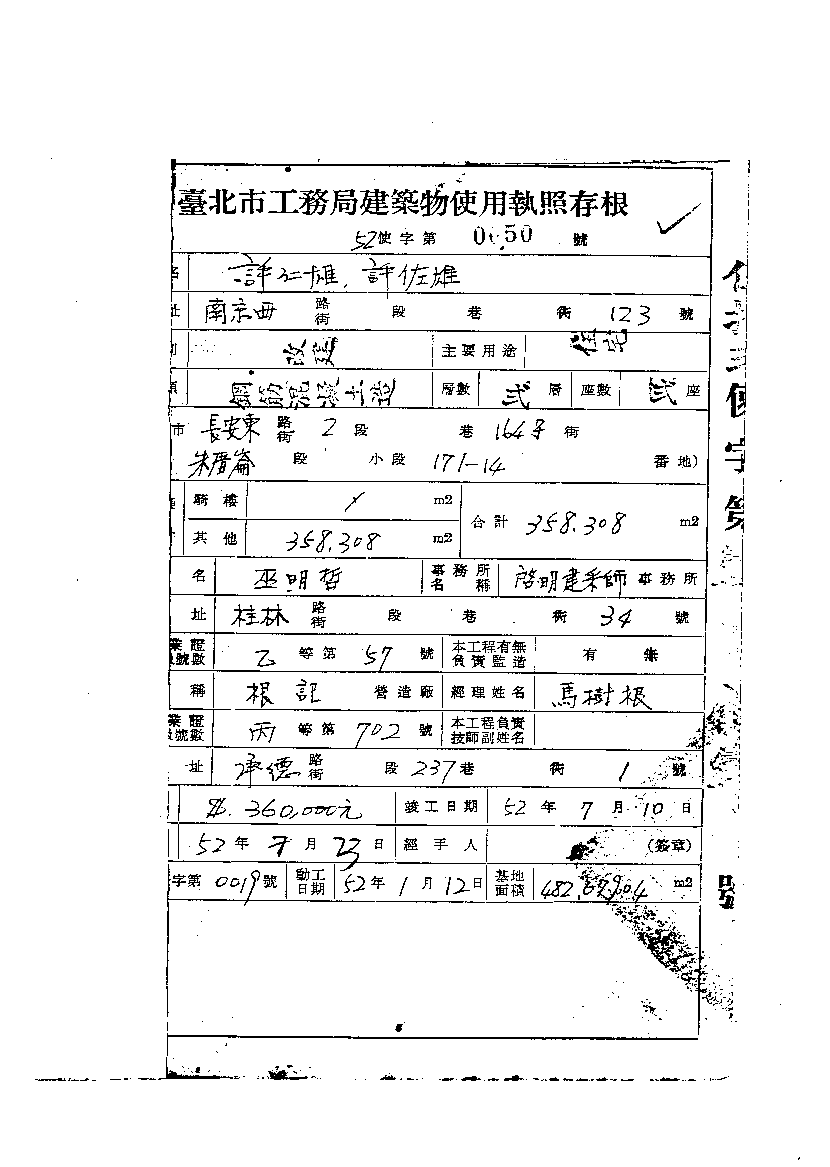 臺北市工務局建築物使用執照存根
52使字第 0650 號
許仁雄、許佐雄
址 南京西 路街 段 巷 衖 123 號
改建 主要用途 住宅
鋼筋混凝土造 層數 弍 層 座數 弍 座
市 長安東 路街 2 段 巷 164 衖
朱厝崙 段 小段 171-14 番地)
騎樓 m2 合計 358.308 m2
其他 358.308 m2
名 巫明哲 事務所名稱 啓明建築師 事務所
址 桂林 路街 段 巷 衖 34 號
業證號數 乙 等第 57 號 本工程有無負責監造 有 無
稱 根記 營造廠 經理姓名 馬樹根
業證號數 丙 等第 702 號 本工程負責技師副姓名
址 承德 路街 段 237 巷 衖 1 號
360,000元 竣工日期 52 年 7 月 10 日
52 年 7 月 23 日 經手人 (簽章)
字第 0019 號 動工日期 52 年 1 月 12 日 基地面積 m2
使字第
號